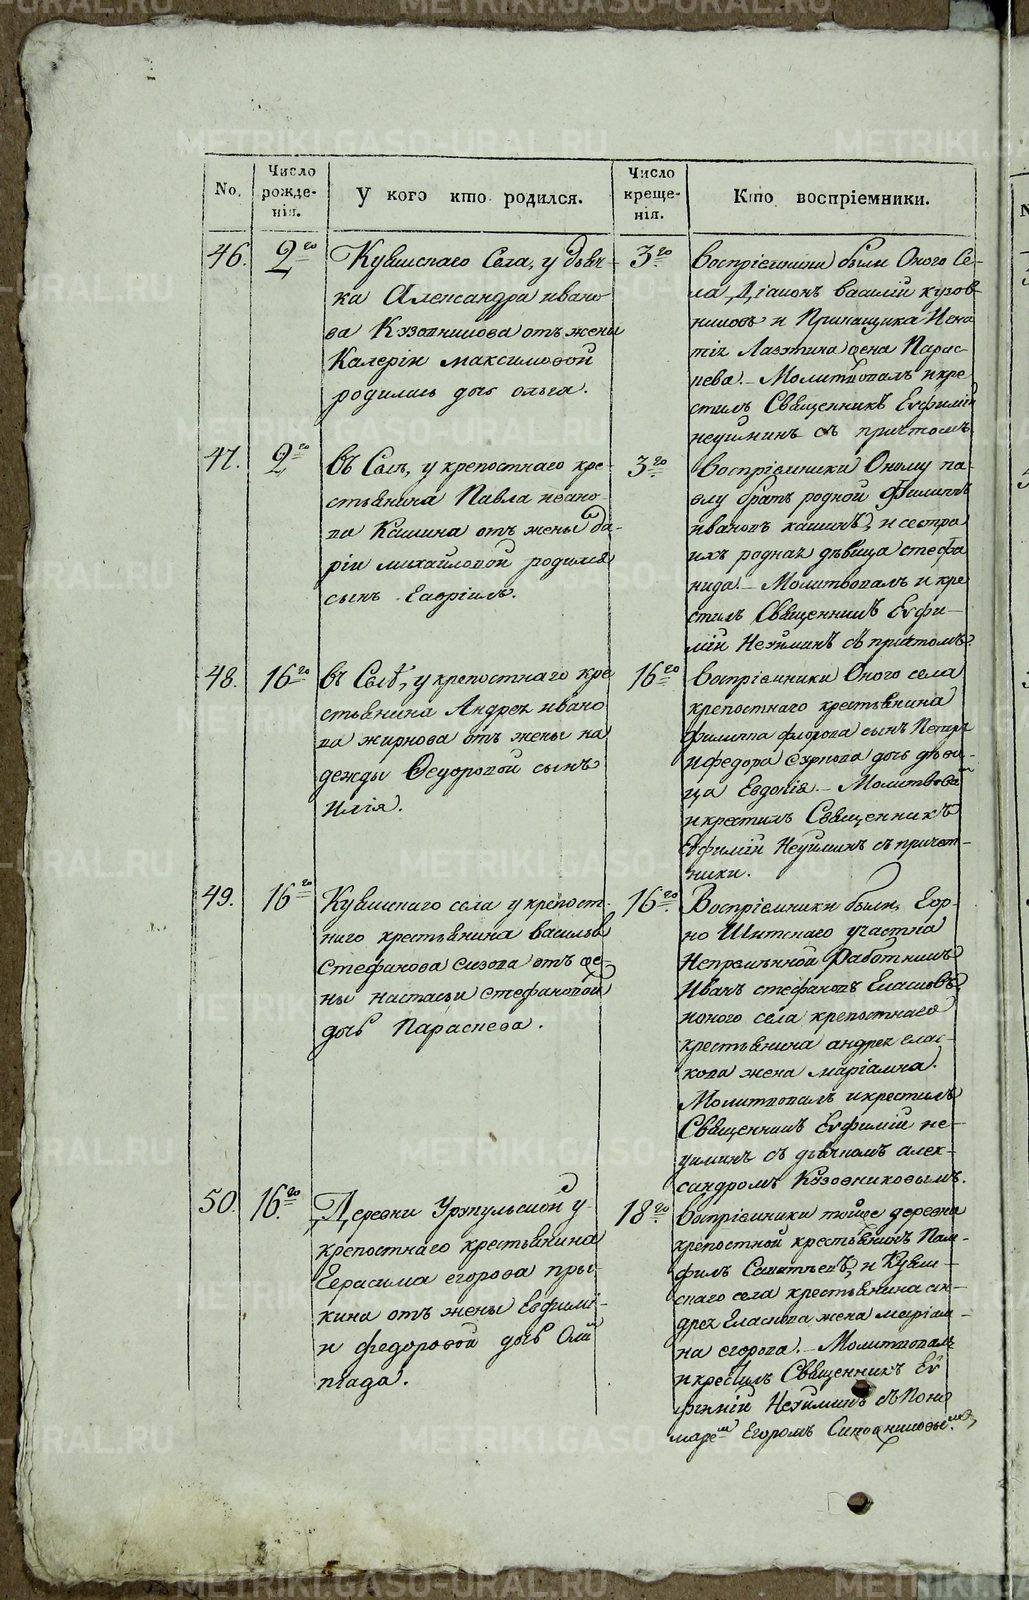 No.
Число рожде-нія.
У кого кто родился.
Число креще-нія.
Кто воспріемники.
46.
2го
Кувинскаго Села, у дьяч-
ка Александра ивано-
ва Кузовникова отъ жены
Калеріи максимовой
родилась дочь ольга.
3го
воспріемники были Оного Се-
ла, Діаконъ василій кузов-
никовъ и Прикащика Игна
тія Лахтина жена Парас-
кева. – Молитвовалъ и кре
стилъ Священникъ Евфимій
неуиминъ съ причтомъ.
47.
2го
въ Селѣ, у крепостнаго кре-
стьянина Павла ивано-
ва Кашина отъ жены Да-
ріи михайловой родился
сынъ Гавріилъ.
3го
воспріемники Оному па-
влу братъ родной Филиппъ
ивановъ кашинъ, и сестра
ихъ родная дѣвица стефа
нида. – Молитвовалъ и кре
стилъ Священникъ Евфи-
мій Неуиминъ съ причтомъ.
48.
16го
въ Селѣ, у крепостнаго кре
стьянина Андрея ивано
ва жирнова отъ жены на
дежды Ѳедоровой сынъ
илія.
16го
воспріемники Оного села
крепостнаго крестьянина
филиппа сынъ Петръ
и федора дочь дѣви-
ца Евдокія. – Молитвовал
и крестилъ Священникъ
Евфимій Неуиминъ съ причет-
ники.
49.
16го
Кувинскаго села у крепост-
наго крестьянина василья
Стефанова сизова отъ же-
ны настасьи стефановой
дочь Параскева.
16го
Воспріемники были, Гор-
но Шитскаго участка
Непремѣнной работникъ
Иванъ стефановъ Гласковъ
и оного села крепостнаго
крестьянина андрея глас-
кова жена маріамна.
Молитвовалъ и крестилъ
Священникъ Евфимій не-
уиминъ съ дьячкомъ алек-
сандромъ Кузовниковымъ.
50.
16го
Деревни у
крепостнаго крестьянина
Герасима егорова пры-
кина отъ жены Евфимі-
и федоровой дочь Олим
піада.
18го
воспріемники тойже деревни
крепостной крестьянинъ Пам-
филъ и Кувин-
скаго села крестьянина ан-
дрея Гласкова жена маріам-
на егорова. – Молитвовалъ
и крестилъ Священникъ Ев
фимій Неуиминъ съ Поно
марем Егоромъ
METRIKI.GASO-URAL.RU